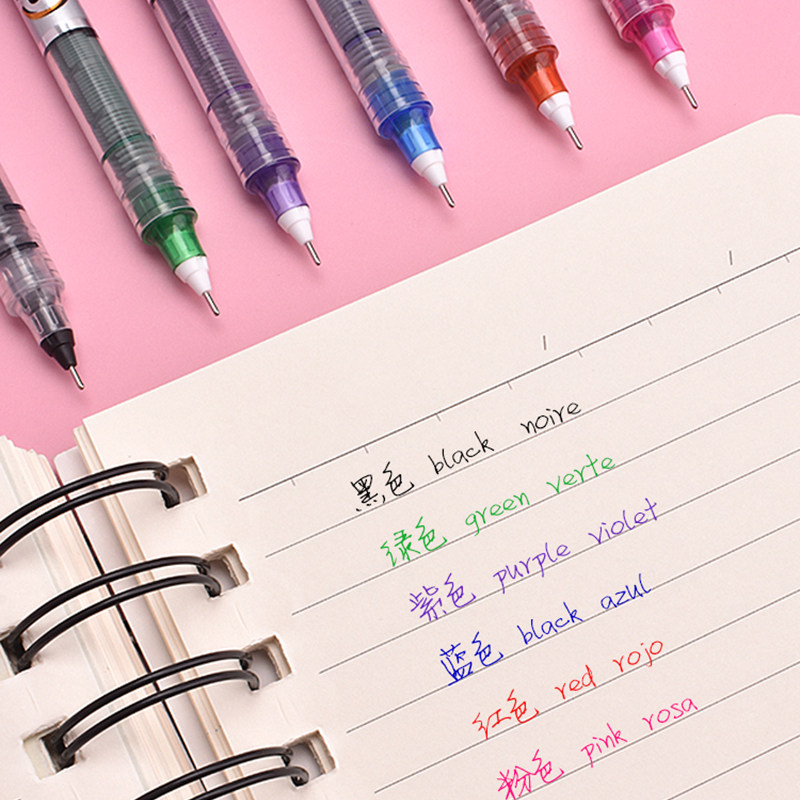 黑色 black noire
绿色 green verte
紫色 purple violet
蓝色 black azul
红色 red rojo
粉色 pink rosa